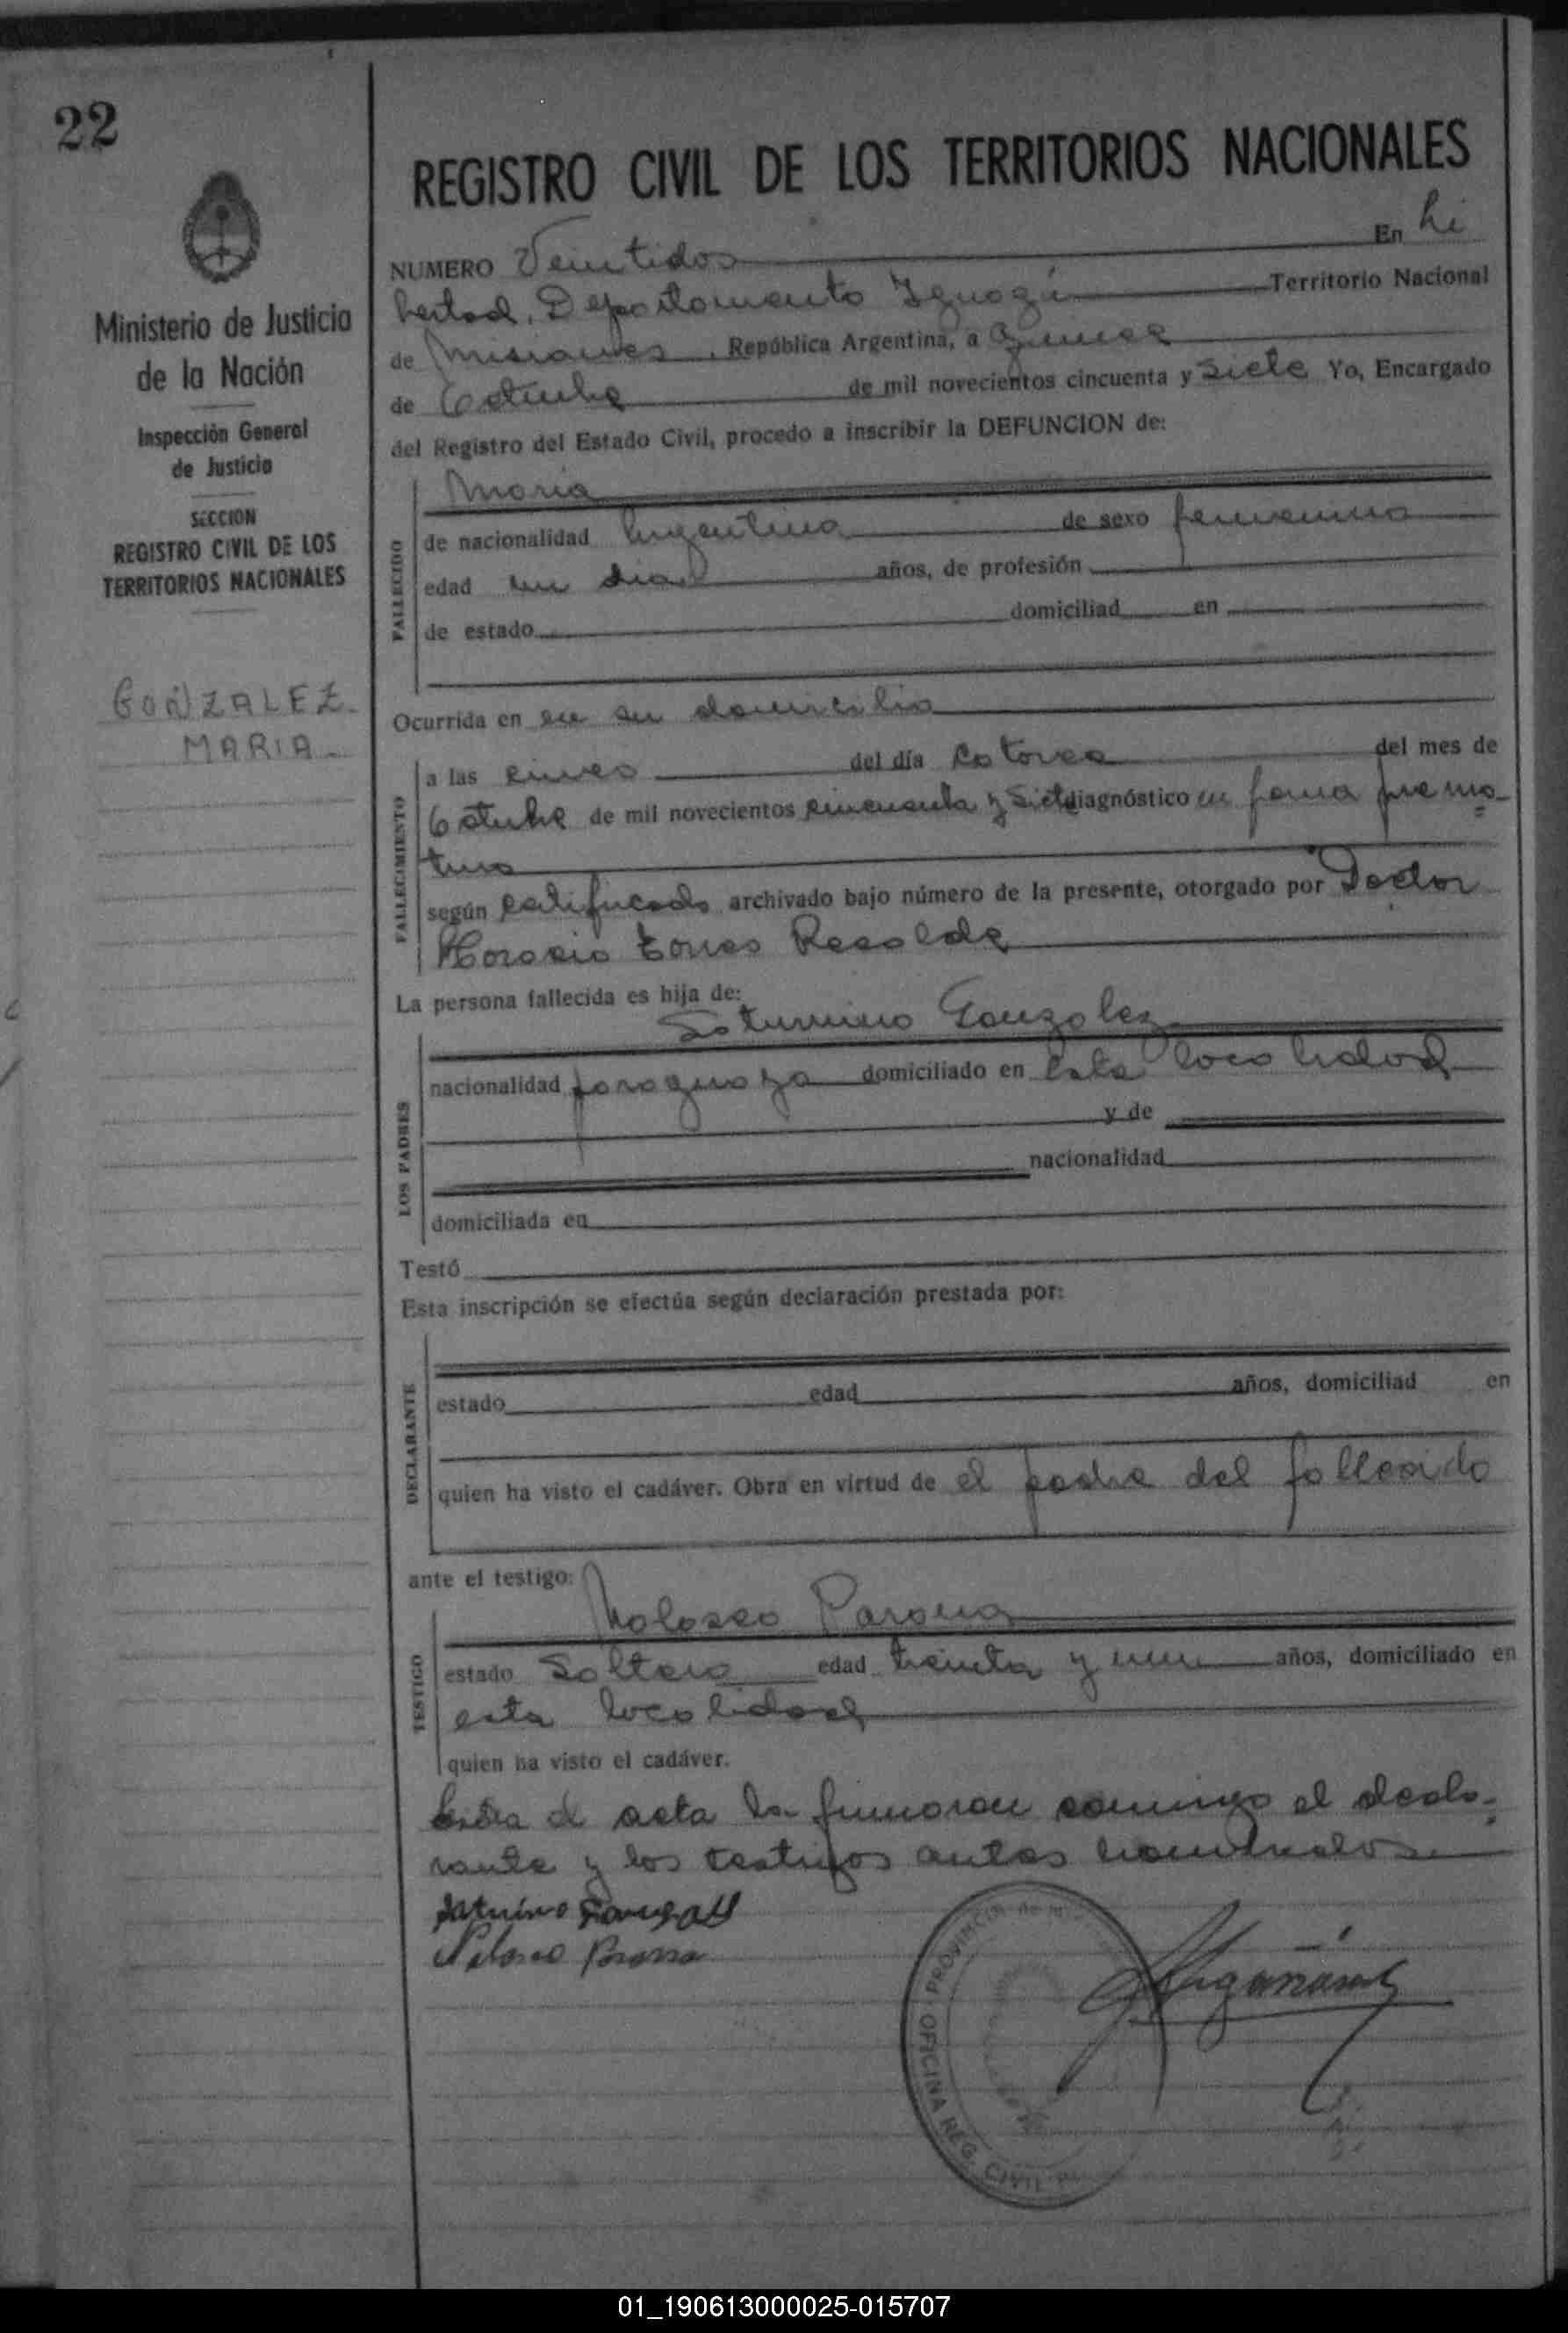 22
Ministerio de Justicia
de la Nación
Inspección General
de Justicia
SECCION
REGISTRO CIVIL DE LOS
TERRITORIOS NACIONALES
GONZALEZ
MARIA
REGISTRO CIVIL DE LOS TERRITORIOS NACIONALES
NUMERO Veintidos En Li
bertad, Departamento Iguazú Territorio Nacional
de Misiones, República Argentina, a Quince
de Octubre de mil novecientos cincuenta y siete Yo, Encargado
del Registro del Estado Civil, procedo a inscribir la DEFUNCION de:
FALLECIDO
Maria
de nacionalidad Argentina de sexo femenino
edad un dia años, de profesión
de estado domiciliad en
Ocurrida en en su domicilio
FALLECIMIENTO
a las cinco del día catorce del mes de
Octubre de mil novecientos cincuenta y siete diagnóstico en forma prema-
tura
según certificado archivado bajo número de la presente, otorgado por Doctor
Horacio Torres Recalde
La persona fallecida es hija de:
LOS PADRES
Saturnino Gonzalez
nacionalidad paraguaya domiciliado en esta localidad
y de
nacionalidad
domiciliada en
Testó
Esta inscripción se efectúa según declaración prestada por:
DECLARANTE
estado edad años, domiciliad en
quien ha visto el cadáver. Obra en virtud de el padre del fallecido
ante el testigo:
TESTIGO
estado Soltero edad treinta y un años, domiciliado en
esta localidad
quien ha visto el cadáver.
acta la firmaron conmigo el decla-
rante y los testigos antes nombrados
PROVINCIA de
OFICINA REG. CIVIL
01_190613000025-015707